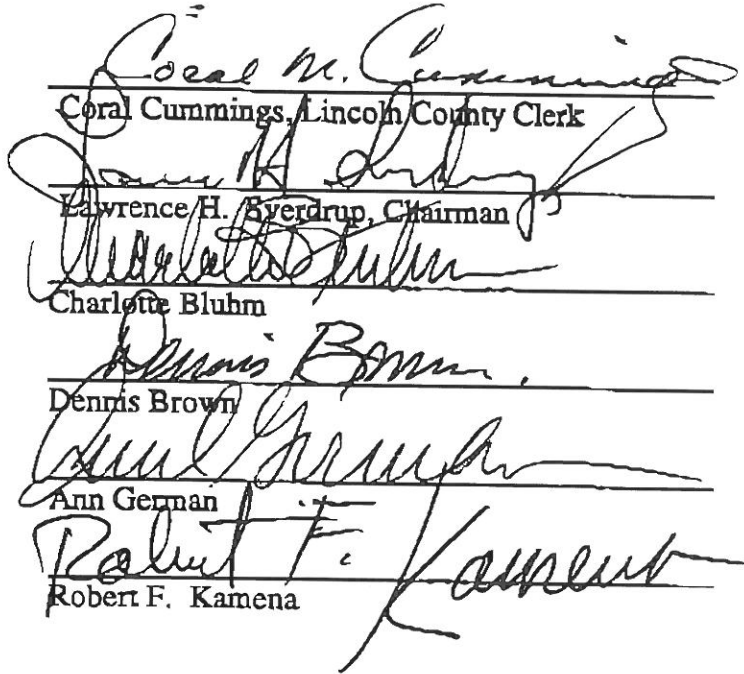 Coral M. Cummings
Coral Cummings, Lincoln County Clerk
Lawrence H. Sverdrup, Chairman
Charlotte Bluhm
Dennis Brown
Dennis Brown
German
Ann German
Robert F. Kamena
Robert F. Kamena